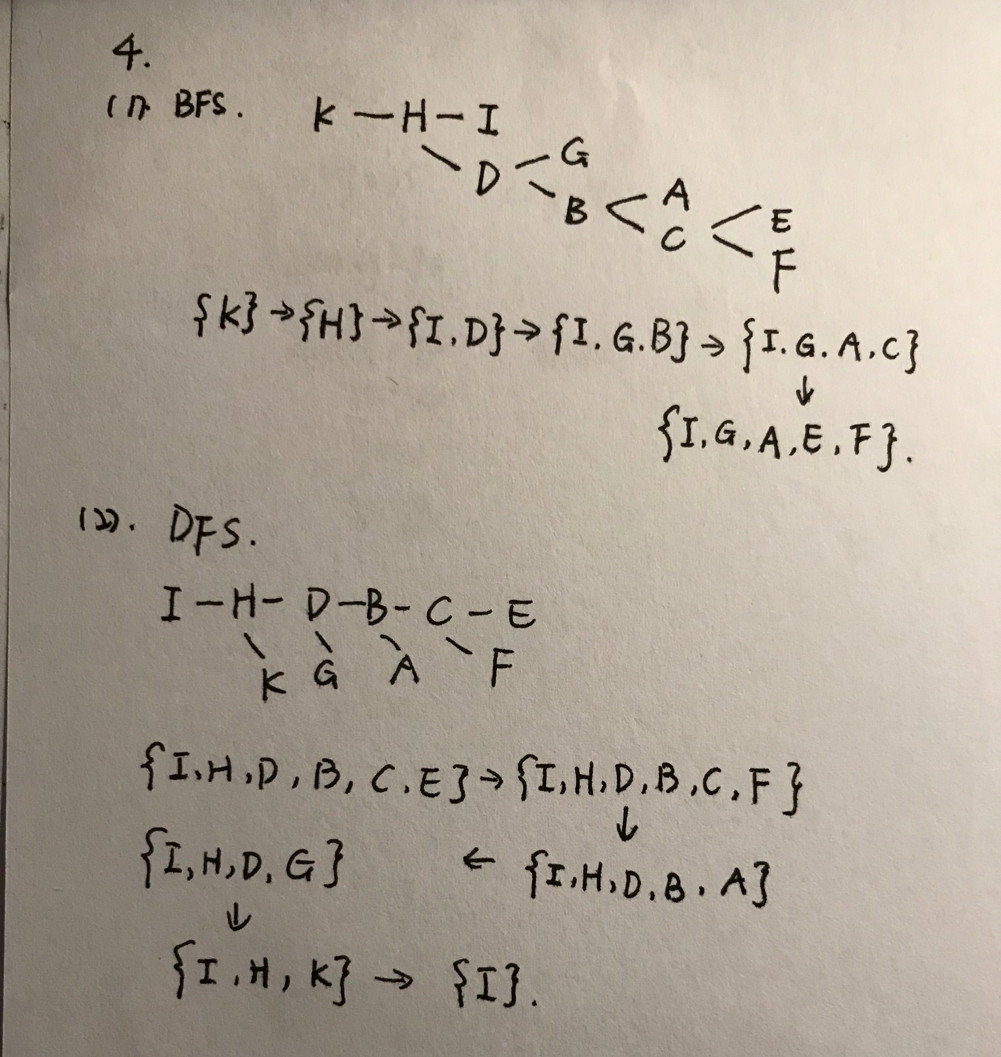 4.
(1) BFS. K — H — I
D G
B A
C E
F
{K} → {H} → {I, D} → {I, G, B} → {I. G. A, C}
↓
{I, G, A, E, F}.
(2). DFS.
I — H — D — B — C — E
K G A F
{I, H, D, B, C, E} → {I, H, D, B, C, F}
↓
{I, H, D, G} ← {I, H, D, B, A}
↓
{I, H, K} → {I}.